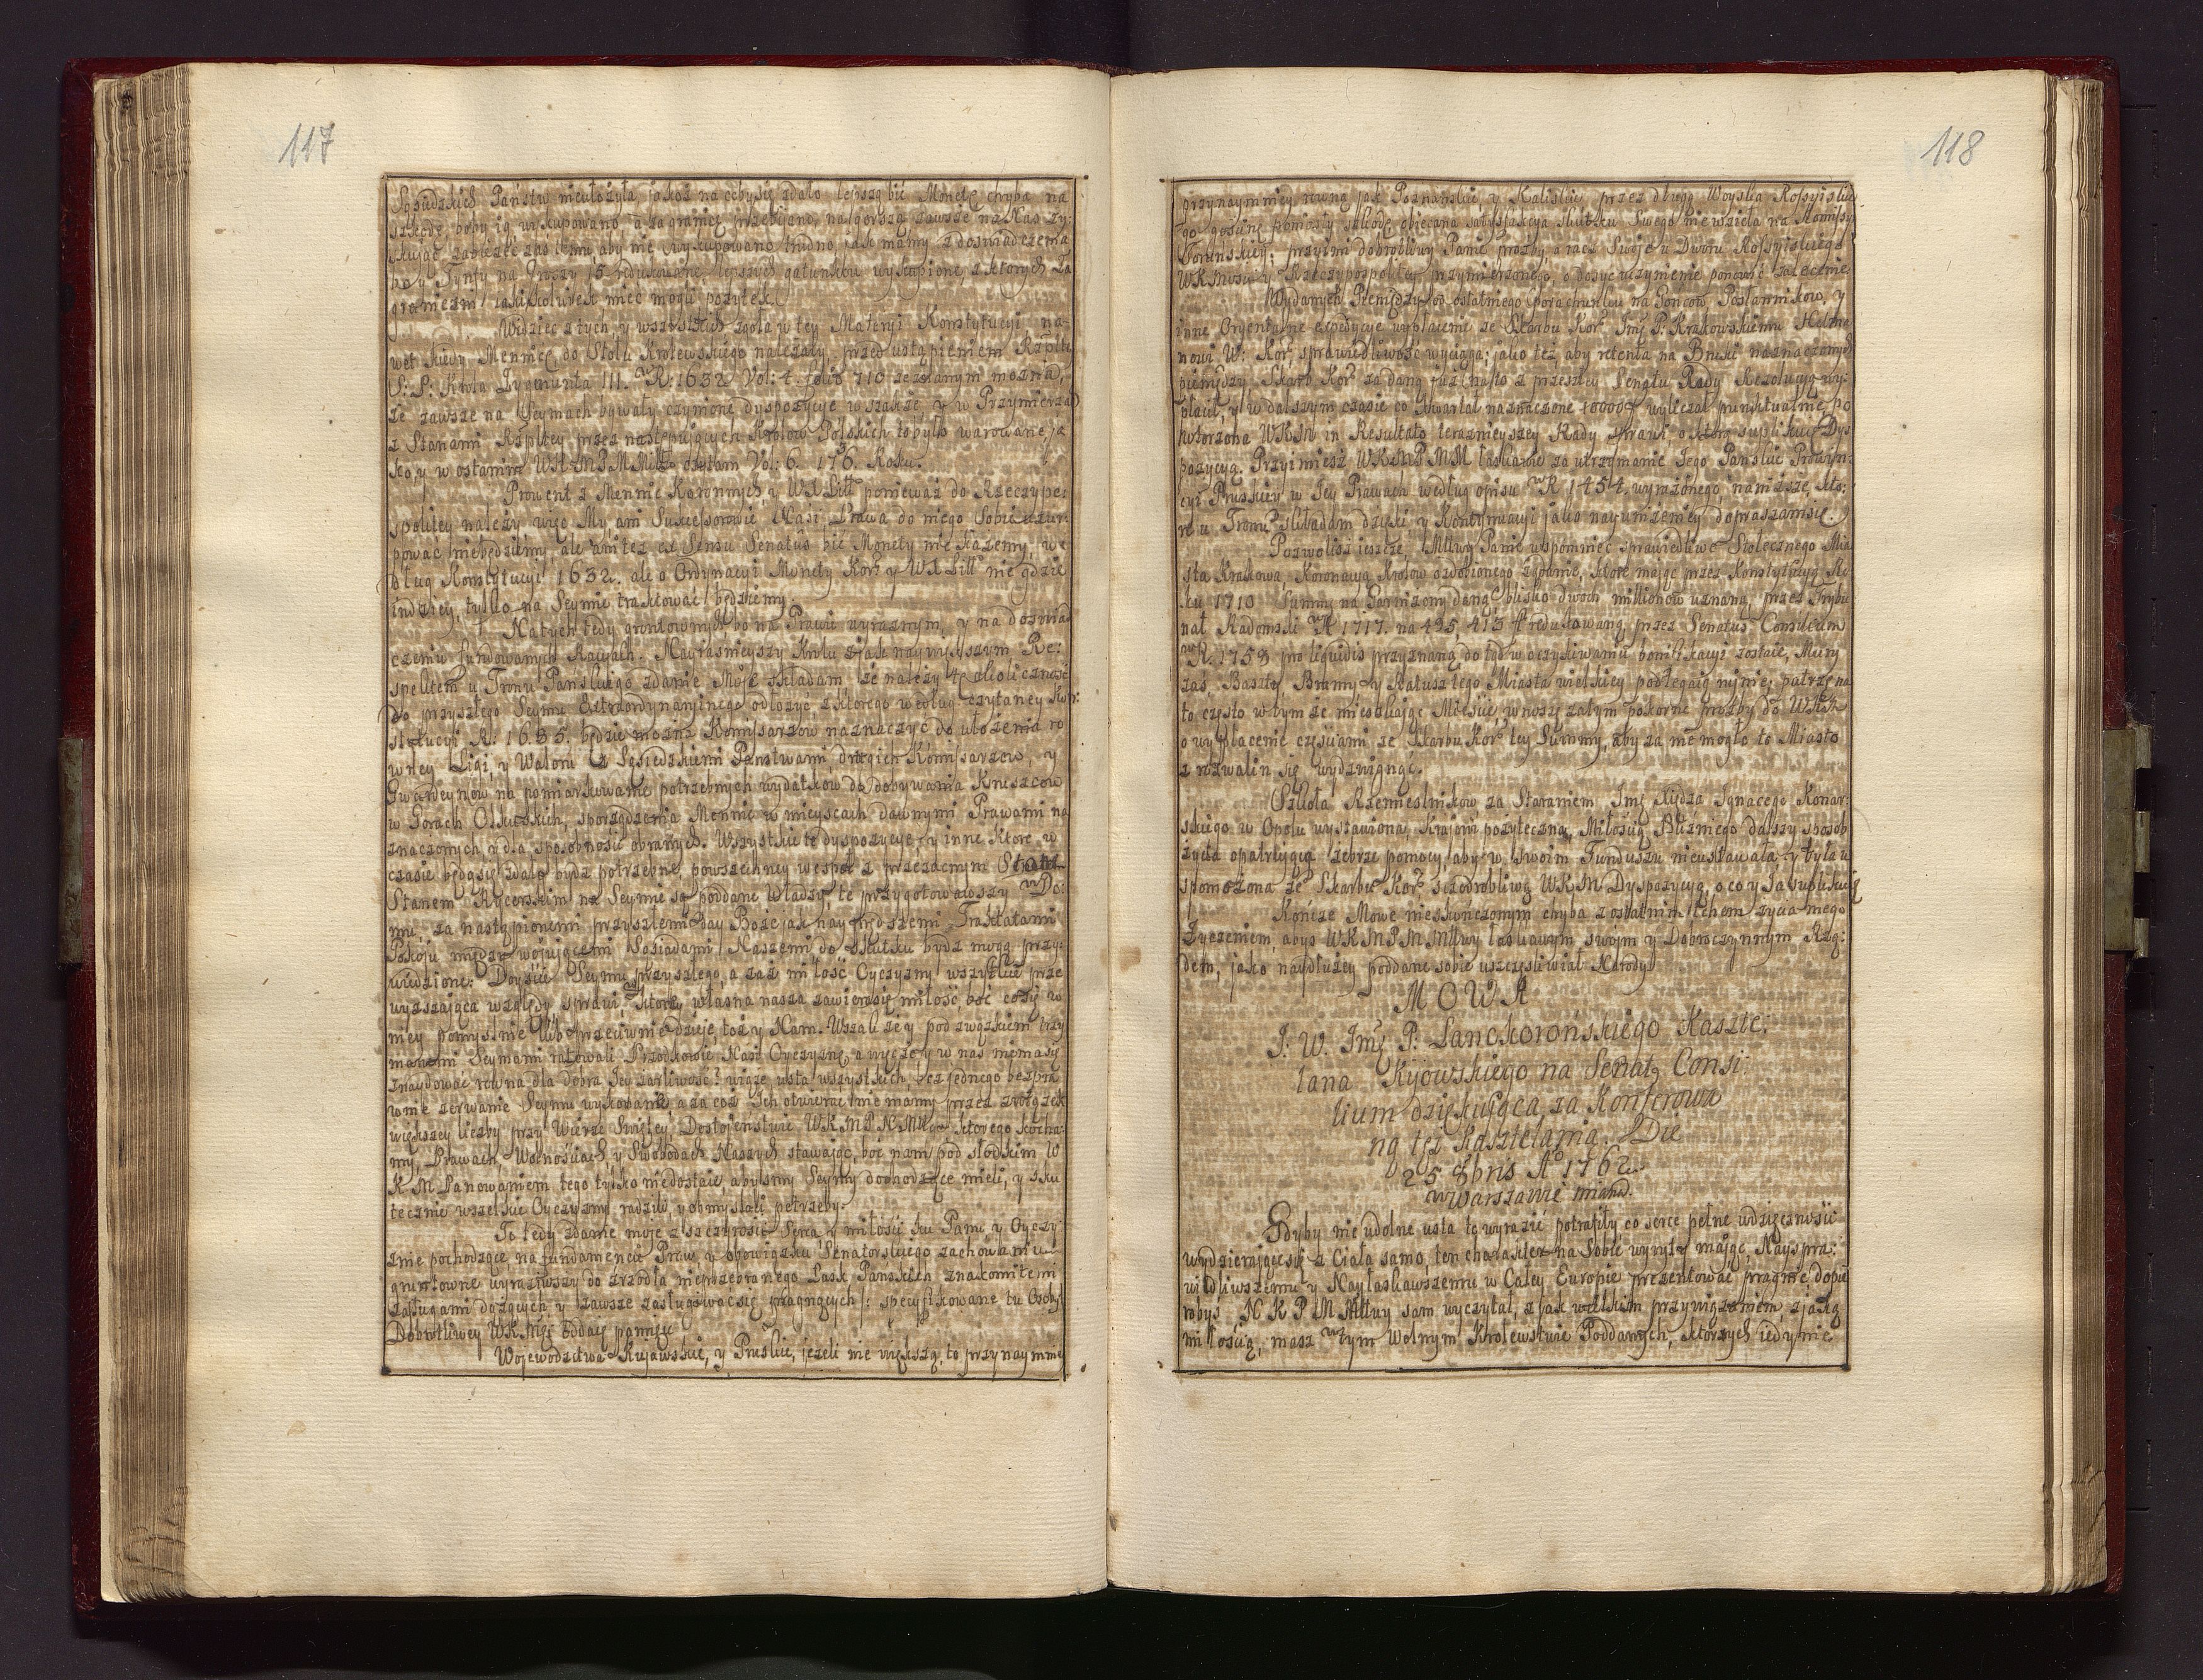 117
Sąsiedzkich Państw nieułożyła, jakoż na cobysię zdało lepszą bić Monetę chyba na
szkodę, boby ią wykupowano, a zagranicę przebijano, na gorszą zawsze na Nas zy:
skując, zabieżeć zaś temu aby nie wykupowano trudno, jak mamy z doswiadczenia
bo y Tynfy na Groszy 15 redukowane lepszych gatunków wykupione, z których Za
graniczni jakikolwiek mieć mogli pożytek.
Widzieć z tych, y wszystkich zgoła w tey Materyi Konstytucyi, na
wet kiedy Mennicę do Stołu Krolewskiego należały, przed ustąpieniem Rzplty
Ś: P: Króla Zygmunta III. wR: 1632 Vol: 4. folio 710 zeznanym można,
że zawsze na Seymach bywały czynione dyspozycye wszakże y w Przymierzach
z Stanami Rzpltey przez następujących Krolow Polskich to było warowane, ja
ko, y w ostatnim WKMPMMiłło czytam Vol: 6. 176. Roku.
Prowent z Mennic Koronnych, y WXLitt ponieważ do Rzeczypo:
spolitey należy więc My, ani Sukcessorowie Nasi Prawa do niego Sobie uzur:
pować niebędziemy, ale ani też ex Sensu Senatûs bić Monety nie każemy, we
dług Konstytucyi 1632. ale o Ordynacyi Monety Korr y WXLitt nie gdzie
indziey, tylko na Seymie traktować będziemy.
Natych tedy gruntownych, bo na Prawie wyraznym, y na doswiad
czeniu fundowanych Racyach. Nayiasnieyszy Krolu z jak naywyższym Re:
spektem u Tronu Pańskiego zdanie Moje składam że należy tę okoliczność
do przyszłego Seymu Extraordynaryinego odłożyć, z którego według czytaney Kon:
stytucyi R: 1685. będzie można Komisarzow naznaczyć do ułożenia ro
wney Ligi, y Waloru z Sąsiedzkiemi Państwami, drugich Komisarzow, y
Gwardeynow na pomiarkowanie potrzebnych wydatkow do dobywania Kruszcow
w Gorach Olkuskich, sporządzenia Mennic w mieyscach dawnymi Prawami na
znaczonych, y dla sposobności obranych. Wszystkie te dyspozycye y inne Ktore w
czasie będąsię zdało bydz potrzebne, powszechney wespoł z przezacnym Stanu
Stanem Rycerskim na Seymie są poddane Władzy, te przygotowawszy wDo:
mu, za nastąpionemi przyszłemi day Boże jak nayprędszemi Traktatami
Pokoju między woiującemi Sąsiadami Naszemi do skutku bydz mogą przy:
wiedzione. Doyście Seymu przyszłego, a zaż miłość Oyczyzny wszystkie prze
wyższająca względy sprawi, w ktorey własna nasza zawierasię miłość, boć cosię w
niey pomyslnie lub przeciwnie dzieje, toż y Nam. Wszak że y pod związkiem trzy
manemi Seymami ratowali Przodkowie Nasi Oyczyznę, a więc że y w nas niemasię
znaydować rowna dla dobra Jey żarliwość? wiąże usta wszystkich bez jednego bezpra
wnie zerwanie Seymu wykonanie a za coż Ich otwierać nie mamy przez związek
większey liczby przy Wierze Swiętey Dostojeństwie WKMPNMłł ktorego Kocha:
my, Prawach, Wolnościach y Swobodach Naszych stawając, boć nam pod słodkim W
KM Panowaniem tego tylko niedostaie, abysmy Seymy dochodzące mieli, y sku
tecznie wszelkie Oyczyzny radzili, y obmyslali potrzeby.
To tedy zdanie moje z szczyrosci Serca y miłości ku Panu y Oyczy
znie pochodzące na fundamencie Praw y obowiązku Senatorskiego zachowaniu
gruntowne wyraziwszy do zrzodła nieprzebranego Łask Pańskich znakomitemi
zasługami dążących y zawsze zasługiwać się pragnących /: specyfikowane tu Osoby:
Dobrotliwey WKMci oddaię pamięci
Wojewodztwa Kujawskie, y Pruskie, jeżeli nie większą, to przynaymniey
118
przynaymniey rowną jak Poznańskie, y Kaliskie przez długą Woyska Rossyiskie
go goszinę poniosły szkodę obiecana satysfakcyia skutku Swego niewzieła na Komissyi
Toruńskiey; przyimi dobrotliwy Panie prozby, a racz Swoje u Dworu Rossyiskiego
WKMości y Rzeczypospolitey przymierzonego, o dosyc uczynienie ponowić zalecenie.
Wydanych Pieniędzy od ostatniego porachunku na Gońcow Posłannikow, y
inne Oryentalne expedycye wypłacenie ze Skarbu Korr Jmć P: Krakowskiemu Hetma
nowi W: Korr sprawiedliwość wyciąga: jako też aby retenta na Bruki naznaczonych
pieniędzy Skarb Korr za daną już na to z przeszłey Senatu Rady Rezolucyą wy:
płacił, y w dalszym czasie co Kwartał naznaczone 10000 wyliczał punktualnie, po
wtorzona WKM in Resultato terazniejszey Rady sprawi, o ktorą suplikuię Dys
pozycya. Przyimiesz WKMPMM łaskawie za utrzymanie Jego Pańskie Prowin:
cyi Pruskiey w Jey Prawach według opisu wR 1454. wyrażonego nanizsze, kto:
re u Tronu składam dzięki y Kontynuacyi jako nayuniżeniey dopraszamsię.
Pozwolisz jeszcze, Miłłwy Panie wspomnieć sprawiedliwe Stołecznego Mia
sta Krakowa, Koronacyą Krolow ozdobionego żądanie, ktore mając przez Konstytucyą Ro
ku 1710 Summę na Garnizony daną blisko dwoch millionow uznaną, przez Trybu
nał Radomski wR 1717. na 495,413 fl redukowaną, przez Senatus Consilium
wR. 1758 pro liquidis przyznaną do tąd w oczykiwaniu bonifikacyi zostaie, Mury
zaś Baszty, Bramy y Ratusz tego Miasta wielkiey podlegaią ruinie; patrzę na
to często w tym że mieszkając Mieście, wnoszę zatym pokorne prozby do WKM
o wypłacenie częsciami ze Skarbu Korr tey Summy, aby za nie mogło to Miasto
z rozwalin się wydzwignąć.
Szkoła Rzemieslnikow za Staraniem Jmć Xiędza Ignacego Konar:
skiego w Opolu wystawiona, Krajowi pożyteczna, Miłością Bliźniego dalszy sposob
życia opatruiącą żebrze pomocy, aby w swoim Funduszu nieustawała, y była w
spomożona ze Skarbu Korr szczodrobliwą WKM Dyspozycyą, o co y Ja suplikuię
Kończę Mowę nieskończonym chyba z ostatnim tchem życia mego
Życzeniem, abyś WKMPMMiłłwy łaskawym swoim y Dobroczynnym Rzą:
dem, jako naydłużey poddane sobie uszczęśliwiał Narody
MOWA
J. W. Jmć P: Lanckorońskiego Kaszte:
lana Kijowskiego na Senatq Consi
lium dziękująca, za Konferowa
ną tęż Kasztelanią. Die
25 8bris Ao 1762.
w Warszawie miana.
Gdyby nie udolne usta te wyrazić potrafiły co serce pełne wdzięczności
wydzierającesię z Ciała samo, ten charakter na Sobie wyryty mając, Nayspra:
wiedliwszemu y Nayłaskawszemu w Całey Europie prezentować pragnie, dopie
robyś N K P M Miłłwy sam wyczytał, z jak wielkim przywiązaniem, z jaką
miłością, masz w tym Wolnym Krolewstwie Poddanych, ktorzych iedynie